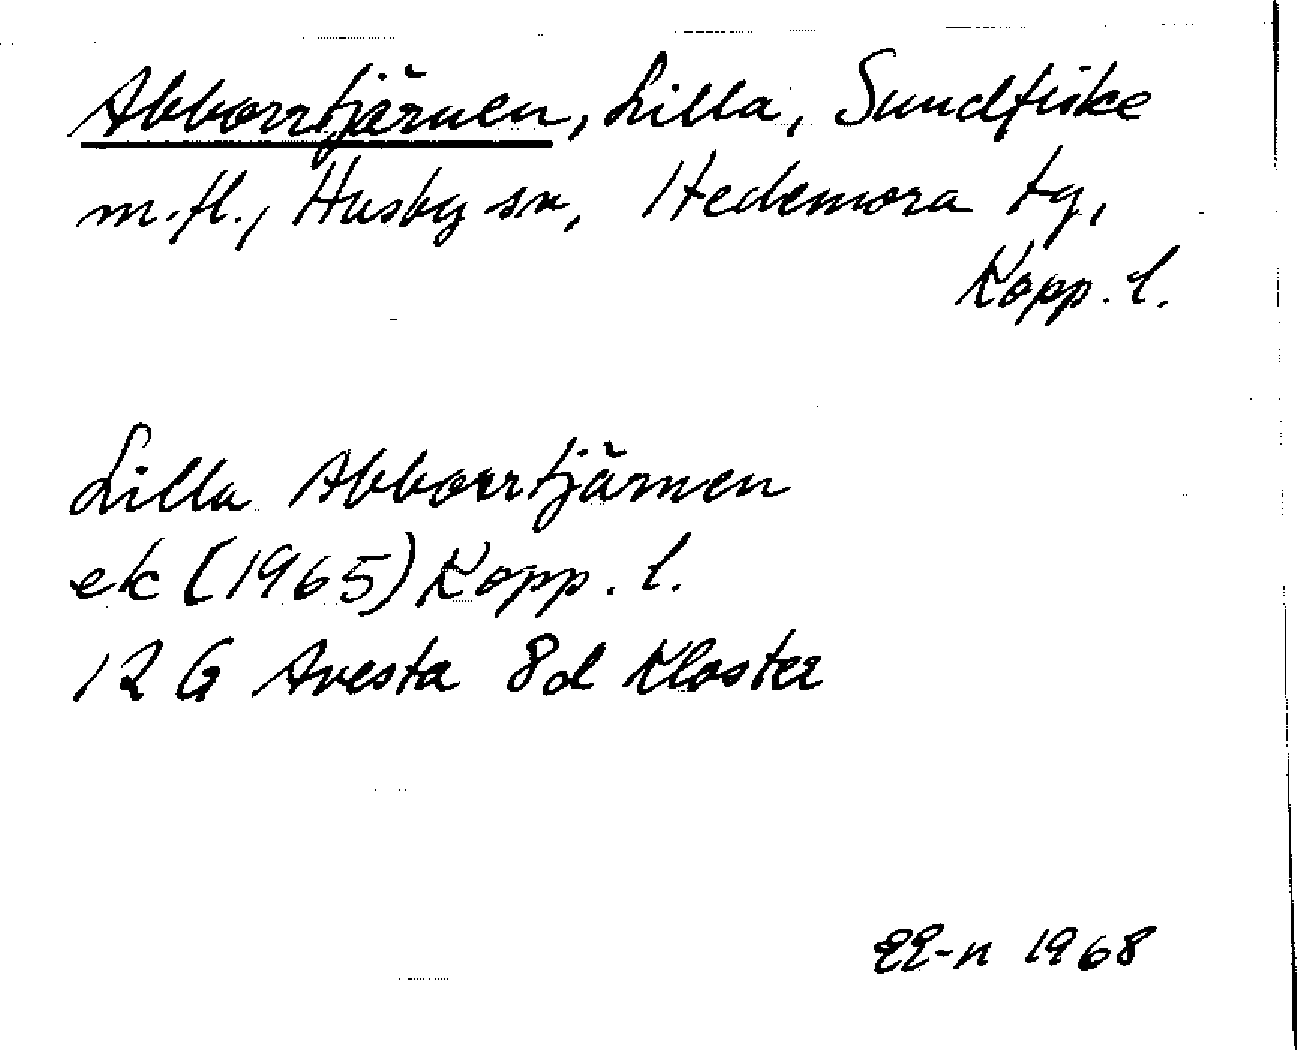 Abborrtjärnen, Lilla, Sundfiske
m.fl., Husby sn, Hedemora tg,
Kopp. l.
Lilla Abborrtjärnen
ek (1965) Kopp. l.
12 G Avesta 8d Kloster
EE-n 1968